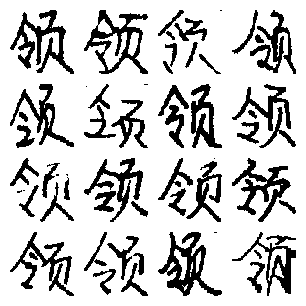 领领领领
领领领领
领领领领
领领领领